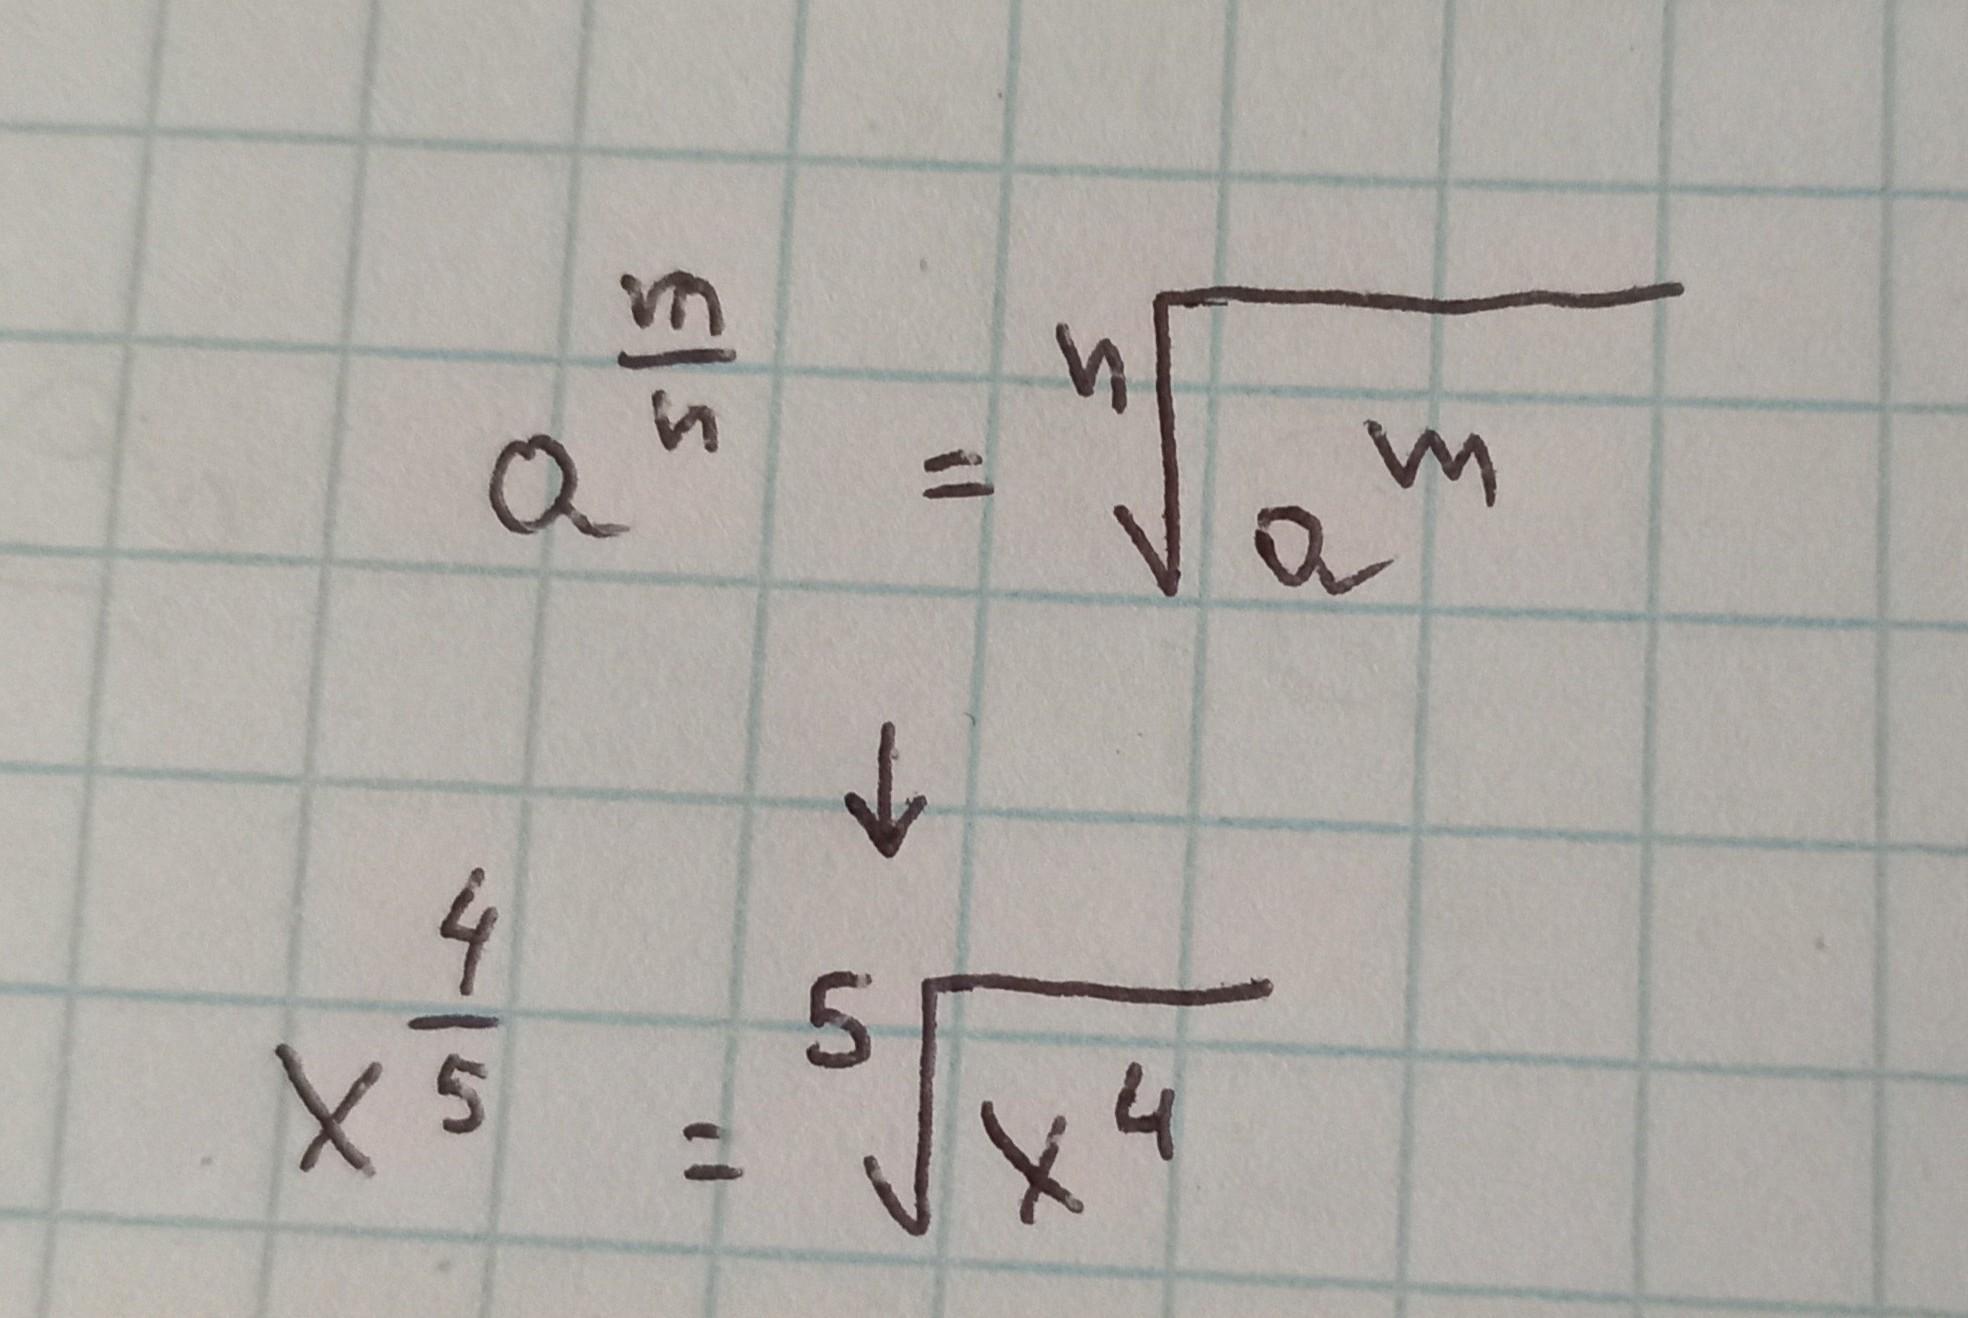 a^(m/n) = ⁿ√(a^m)
↓
x^(4/5) = ⁵√(x^4)